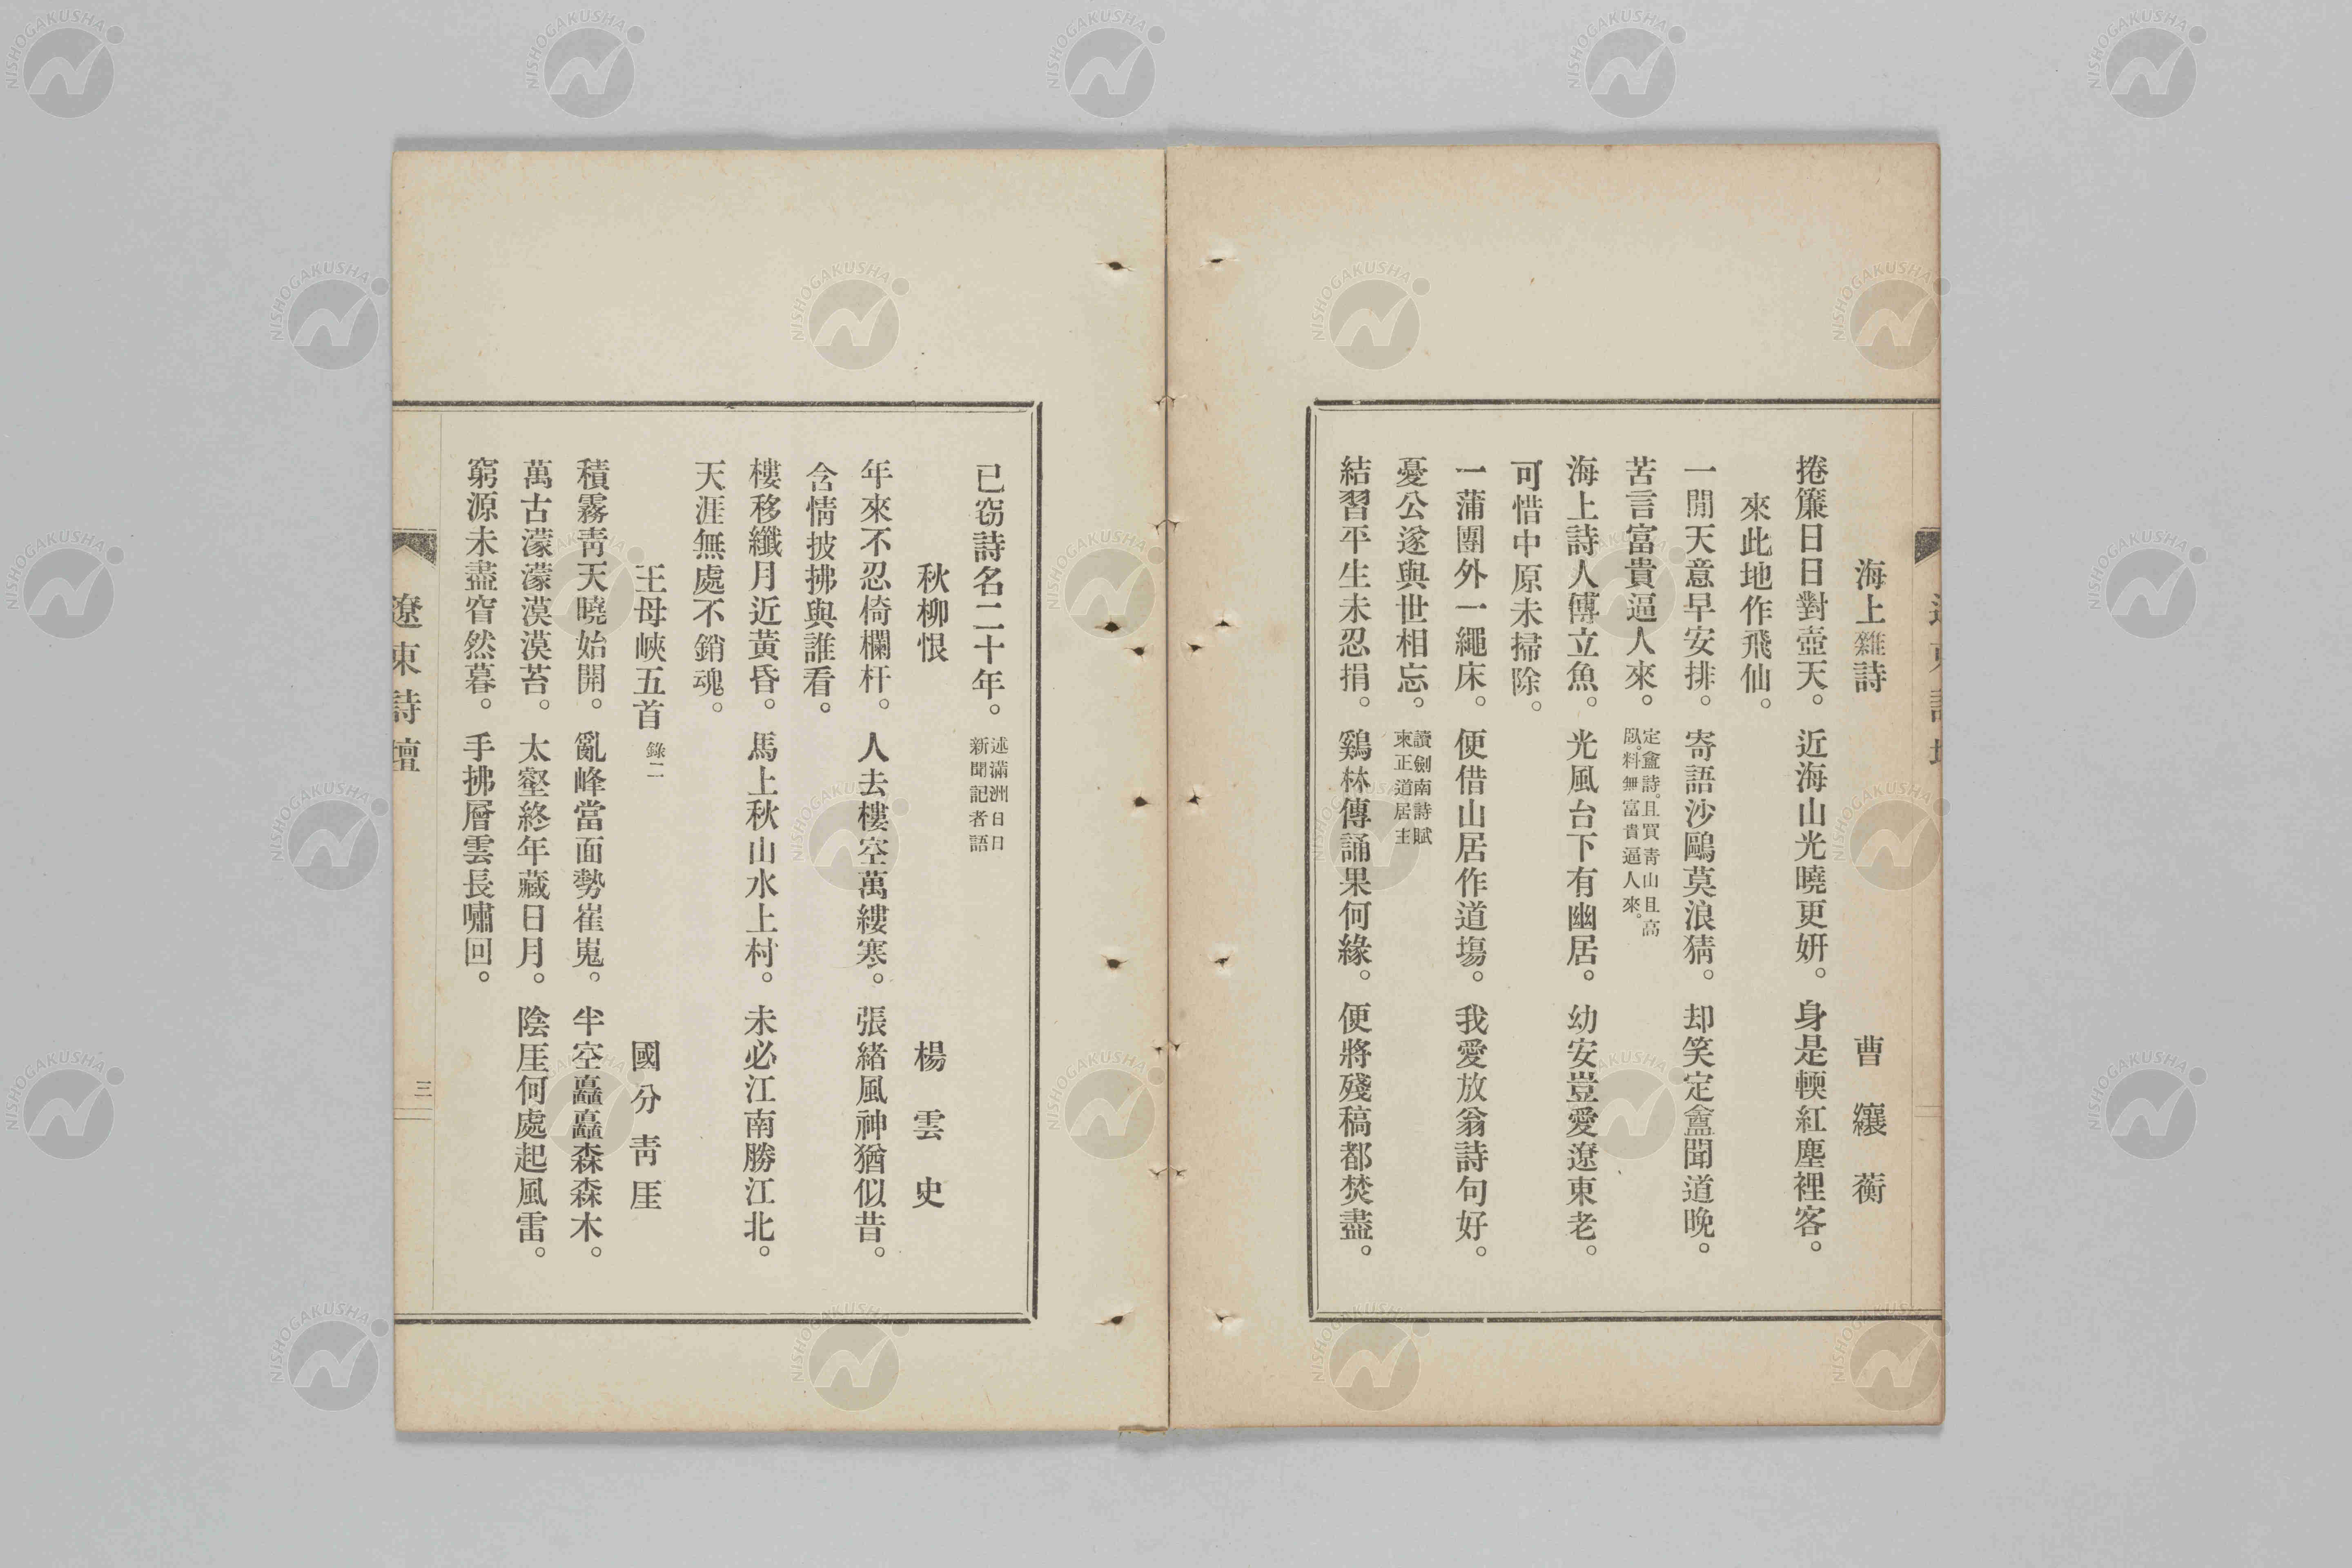 海上雜詩　曹纕蘅
捲簾日日對壺天。近海山光曉更妍。身是輭紅塵裡客。
來此地作飛仙。
一閒天意早安排。寄語沙鷗莫浪猜。却笑定盦聞道晚。
苦言富貴逼人來。定盦詩。且買靑山且高
臥。料無富貴逼人來。
海上詩人傅立魚。光風台下有幽居。幼安豈愛遼東老。
可惜中原未掃除。
一蒲團外一繩床。便借山居作道塲。我愛放翁詩句好。
憂公遂與世相忘。讀劍南詩賦
柬正道居主
結習平生未忍捐。鷄林傳誦果何緣。便將殘稿都焚盡。
已窃詩名二十年。述滿洲日日
新聞記者語
秋柳恨　楊雲史
年來不忍倚欄杆。人去樓空萬縷寒。張緒風神猶似昔。
含情披拂與誰看。
樓移纖月近黃昏。馬上秋山水上村。未必江南勝江北。
天涯無處不銷魂。
王母峽五首　錄二　國分靑厓
積霧靑天曉始開。亂峰當面勢崔嵬。半空矗矗森森木。
萬古濛濛漠漠苔。太壑終年藏日月。陰厓何處起風雷。
窮源未盡窅然暮。手拂層雲長嘯回。
遼東詩壇
三
NISHOGAKUSHA